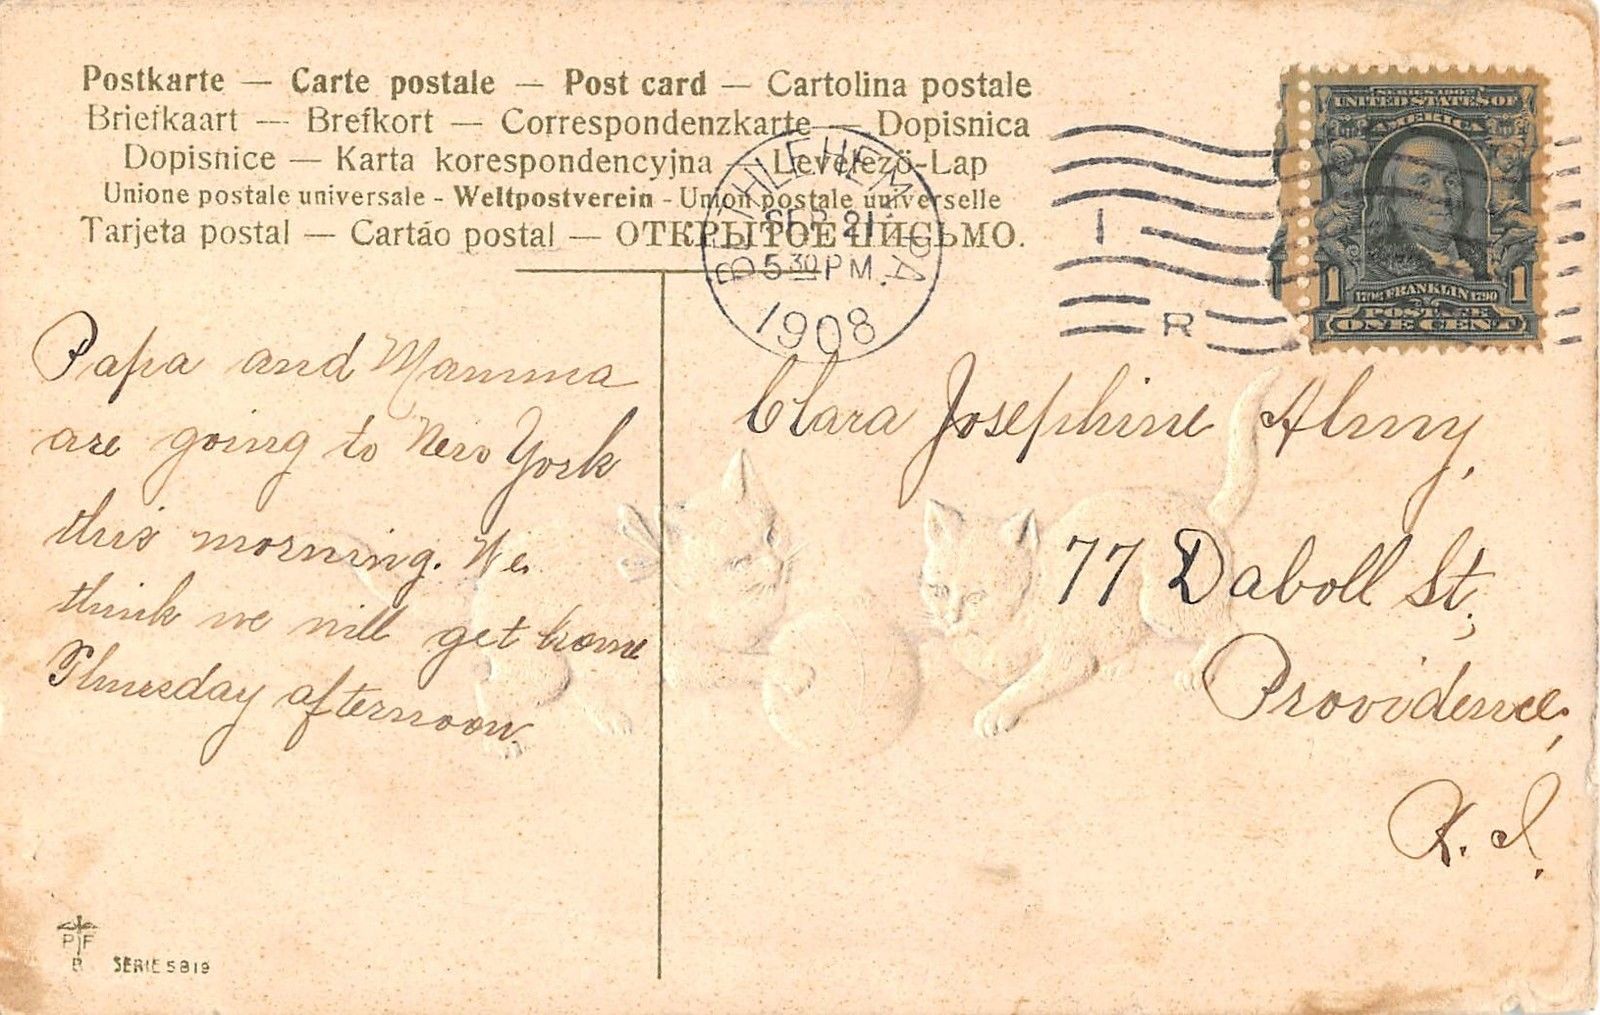 Postkarte — Carte postale — Post card — Cartolina postale
Briefkaart — Brefkort — Correspondenzkarte — Dopisnica
Dopisnice — Karta korespondencyjna — Levelező-Lap
Unione postale universale - Weltpostverein - Union postale universelle
Tarjeta postal — Cartáo postal — ОТКРЫТОЕ ПИСЬМО.
BETHLEHEM, PA.
SEP 21
5 30 PM
1908
1
R
SERIES 1902
UNITED STATES OF
AMERICA
1 1706 FRANKLIN 1790 1
POSTAGE
ONE CENT
Papa and Mamma
are going to New York
this morning. We
think we will get home
afternoon.
Clara Josephine Almy,
77 Daboll St.,
Providence,
R. I.
PF
B
SERIE 5819